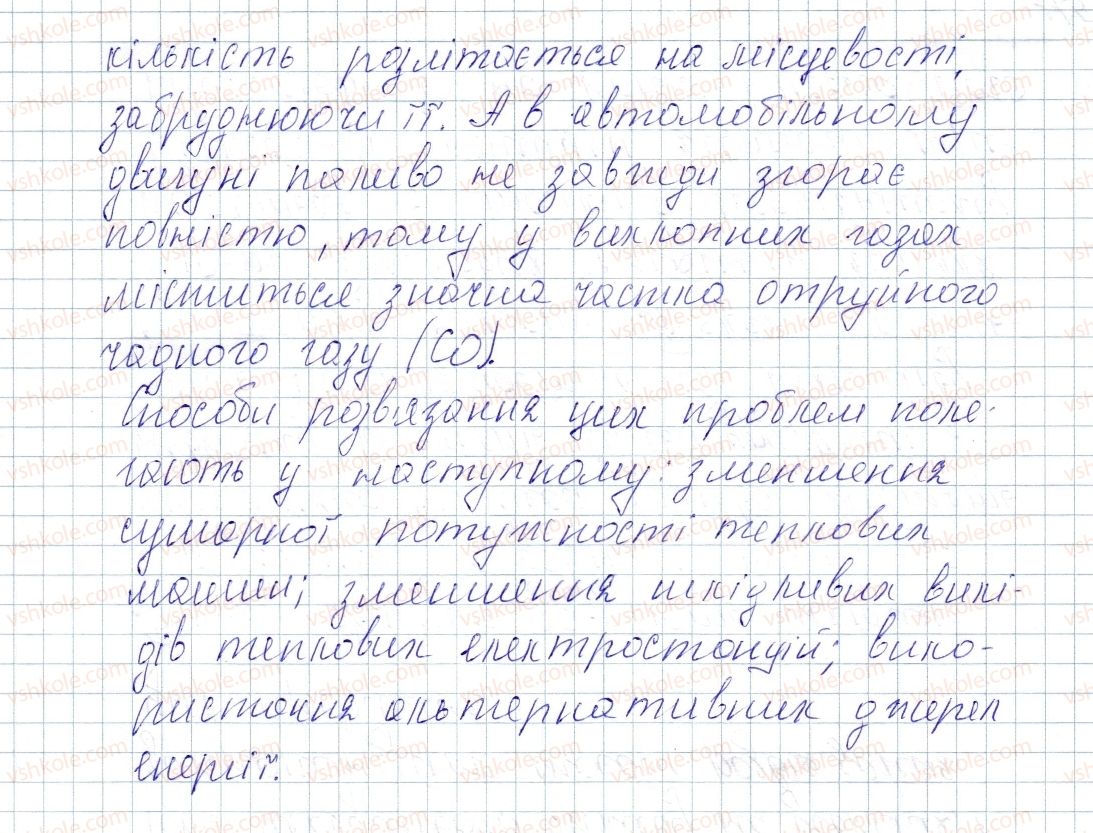 кількість розлітається на місцевості,
забруднюючи її. А в автомобільному
двигуні паливо не завжди згорає
повністю, тому у вихлопних газах
міститься значна частка отруйного
чадного газу (СО).
Способи розв'язання цих проблем поля-
гають у наступному: зменшення
сумарної потужності теплових
машин; зменшення шкідливих вики-
дів теплових електростанцій; вико-
ристання альтернативних джерел
енергії.